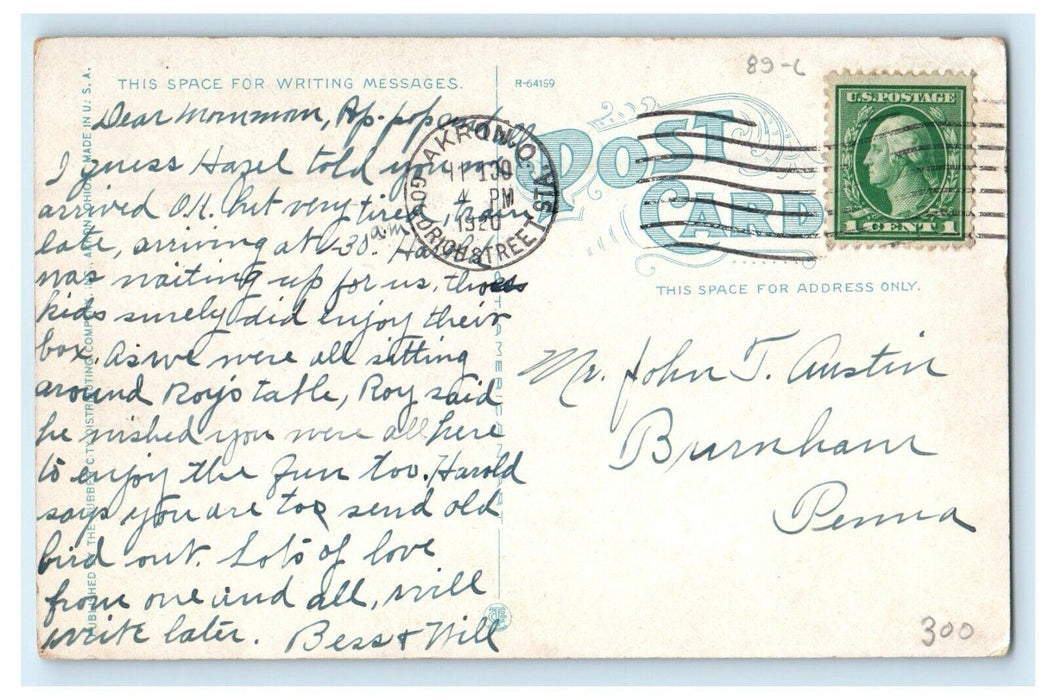 THIS SPACE FOR WRITING MESSAGES.
Dear Mommom, Pop-pop and all
I guess Hazel told you we
arrived O.K. but very tired, train
late, arriving at 30. am Harold
was waiting up for us, those
kids surely did enjoy their
box. As we were all sitting
around Roy's table, Roy said
he wished you were all here
to enjoy the fun too. Harold
says you are to send old
bird out. Lots of love
from one and all, will
write later. Bess & Will
PUBLISHED BY THE RUBBER CITY DISTRIBUTING COMPANY, INC., AKRON, OHIO. MADE IN U.S.A.
R-64159
POST CARD
AKRON, O.
GOODRICH STREET STA.
4 PM
1920
89-6
U.S. POSTAGE
1 CENT 1
THIS SPACE FOR ADDRESS ONLY.
Mr. John T. Austin
Burnham
Penna
300